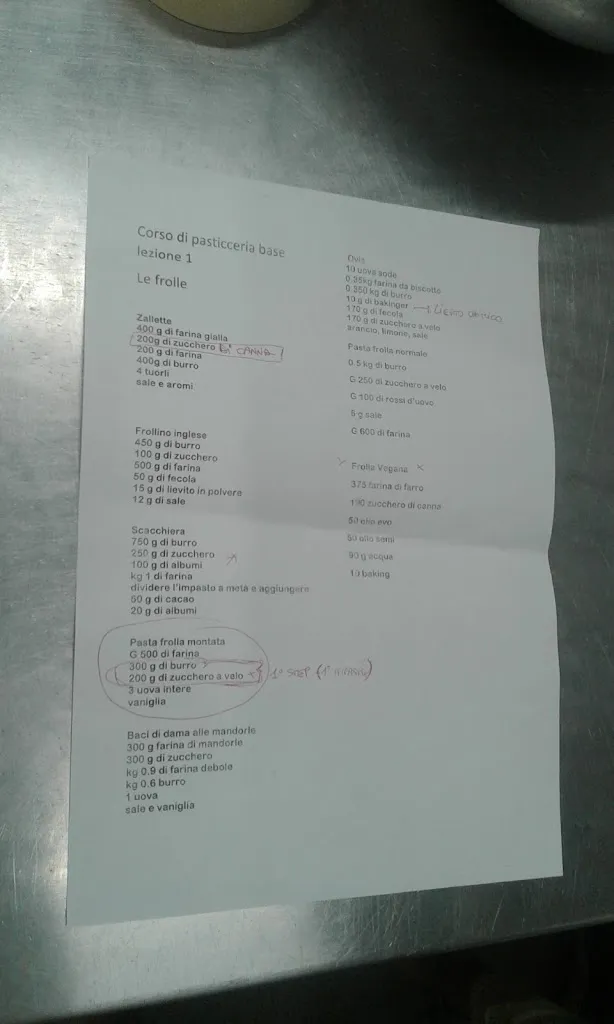 Corso di pasticceria base
lezione 1
Le frolle
Zallette
400 g di farina gialla
200g di zucchero di CANNA
200 g di farina
400g di burro
4 tuorli
sale e aromi
Frollino inglese
450 g di burro
100 g di zucchero
500 g di farina
50 g di fecola
15 g di lievito in polvere
12 g di sale
Scacchiera
750 g di burro
250 g di zucchero
100 g di albumi
kg 1 di farina
dividere l'impasto a metà e aggiungere
60 g di cacao
20 g di albumi
Pasta frolla montata
G 500 di farina
300 g di burro
200 g di zucchero a velo
1° STEP (1°
3 uova intere
vaniglia
Baci di dama alle mandorle
300 g farina di mandorle
300 g di zucchero
kg 0.9 di farina debole
kg 0.6 burro
1 uova
sale e vaniglia
Ovis
10 uova sode
0.35kg farina da biscotto
0.350 kg di burro
10 g di bakinger → LIEVITO CHIMICO
170 g di fecola
170 g di zucchero a velo
arancio, limone, sale
Pasta frolla normale
0.5 kg di burro
G 250 di zucchero a velo
G 100 di rossi d'uovo
5 g sale
G 600 di farina
Frolla Vegana
375 farina di farro
190 zucchero di canna
50 olio evo
50 olio semi
90 g acqua
10 baking